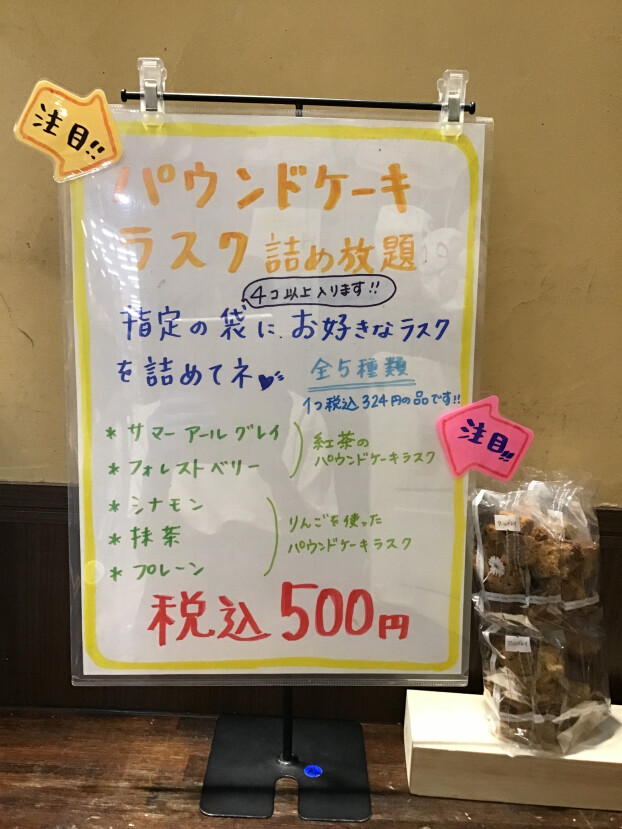 注目!!
パウンドケーキ
ラスク詰め放題
4コ以上入ります!!
指定の袋に、お好きなラスク
を詰めてネ♥
全5種類
1つ税込324円の品です!!
注目!!
* サマーアールグレイ
* フォレストベリー
紅茶の
パウンドケーキラスク
* シナモン
* 抹茶
* プレーン
りんごを使った
パウンドケーキラスク
税込500円